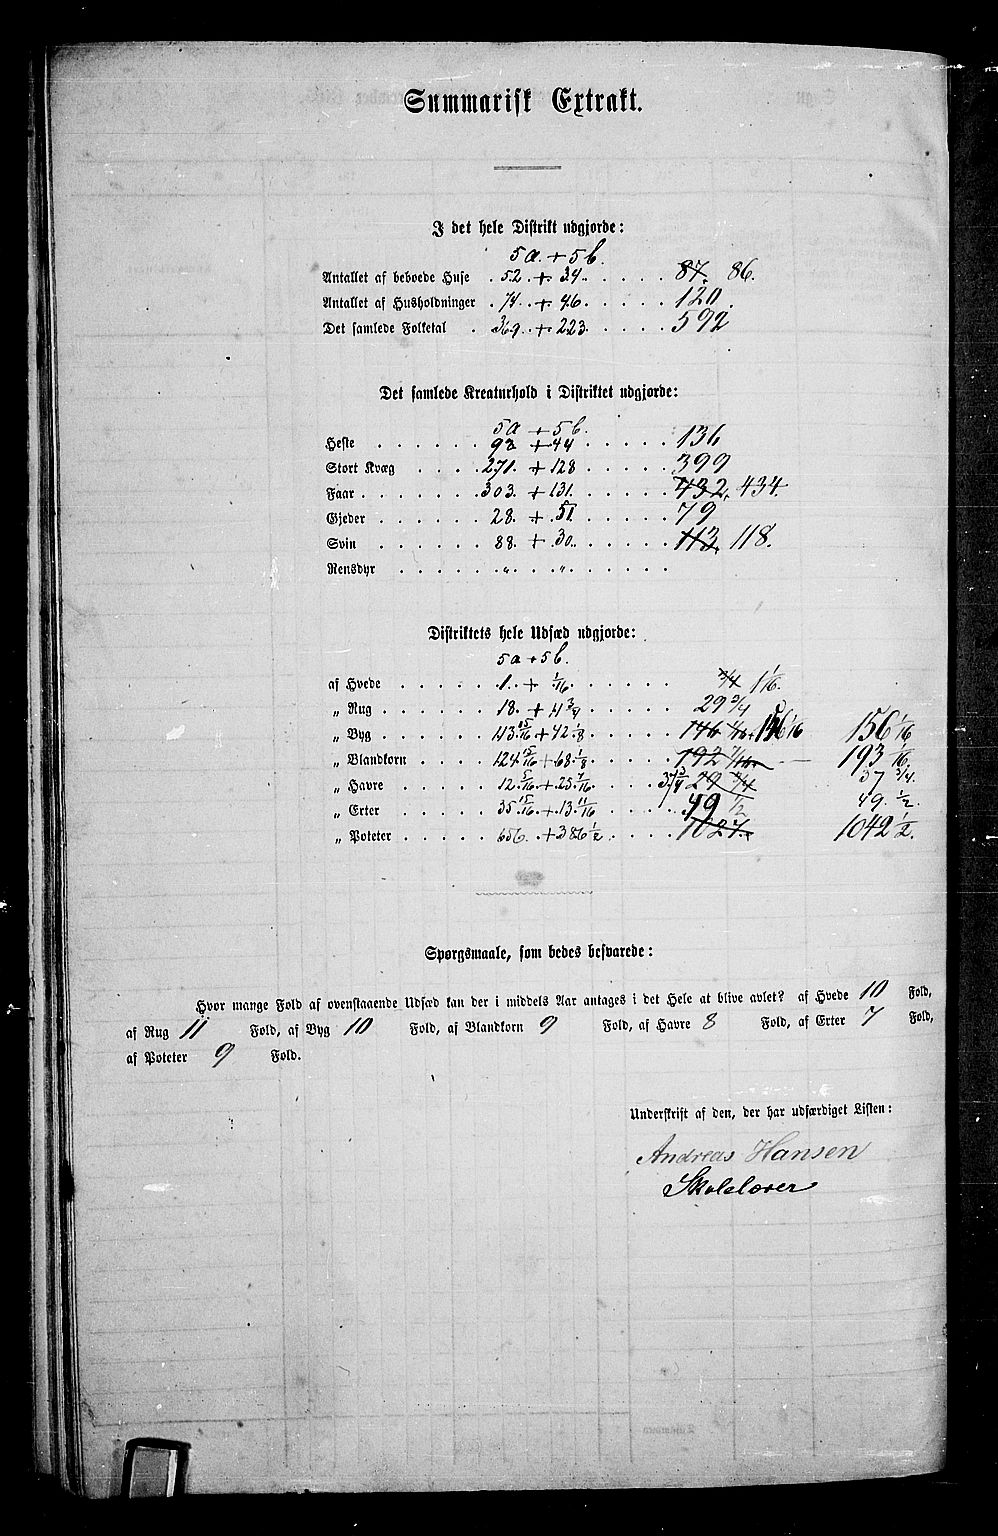 Summarisk Extrakt.
I det hele Distrikt udgjorde:
5a. + 5b.
Antallet af beboede Huse . 52 . + 34 . . . . . . 87. 86.
Antallet af Husholdninger . 74 . . + 46 . . . . . . 120.
Det samlede Folketal . 369 . . + 223 . . . . . 592
Det samlede Kreaturhold i Distriktet udgjorde:
5a + 5b.
Heste . . . . . . 92 + 44 . . . . . 136
Stort Kvæg . . . . 271. + 128 . . . . . 399
Faar . . . . . . 303. + 131. . . . . . 432. 434.
Gjeder . . . . . 28. + 51 . . . . . 79
Svin . . . . . . 88. + 30. . . . . . 113. 118.
Rensdyr . . . . . „ . . „ . . . . . .
Distriktets hele Udsæd udgjorde:
5a + 5b.
af Hvede . . . . . 1. . + 1/16. . . . . . 3/4 1 1/16.
„ Rug . . . . . . 18. + 11 3/4 . . . . . 29 3/4
„ Byg . . . . . . 113 15/16 + 42 1/8 . . . . . 146 1/16 156 1/16 156 1/16
„ Blandkorn . . . . 124 15/16 + 68 1/8 . . . . . 192 1/16 193 1/16.
„ Havre . . . . . 12 5/16 + 25 7/16 . . . . 37 3/4 29 3/4 37 3/4.
„ Erter . . . . . 35 15/16 + 13 11/16 . . . . 49 1/2 49. 1/2.
„ Poteter . . . . . 656. . + 386 1/2 . . . . . 1027. 1042 1/2.
Spørgsmaale, som bedes besvarede:
Hvor mange Fold af ovenstaaende Udsæd kan der i middels Aar antages i det Hele at blive avlet? af Hvede 10 Fold,
af Rug 11 Fold, af Byg 10 Fold, af Blandkorn 9 Fold, af Havre 8 Fold, af Erter 7 Fold,
af Poteter 9 Fold.
Underskrift af den, der har udfærdiget Listen:
Andreas Hansen
Skolelærer